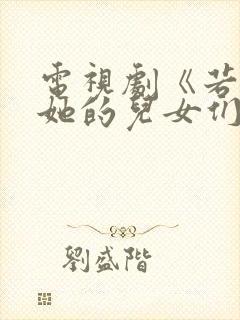 電視劇《若
她的兒女们
劉盛階